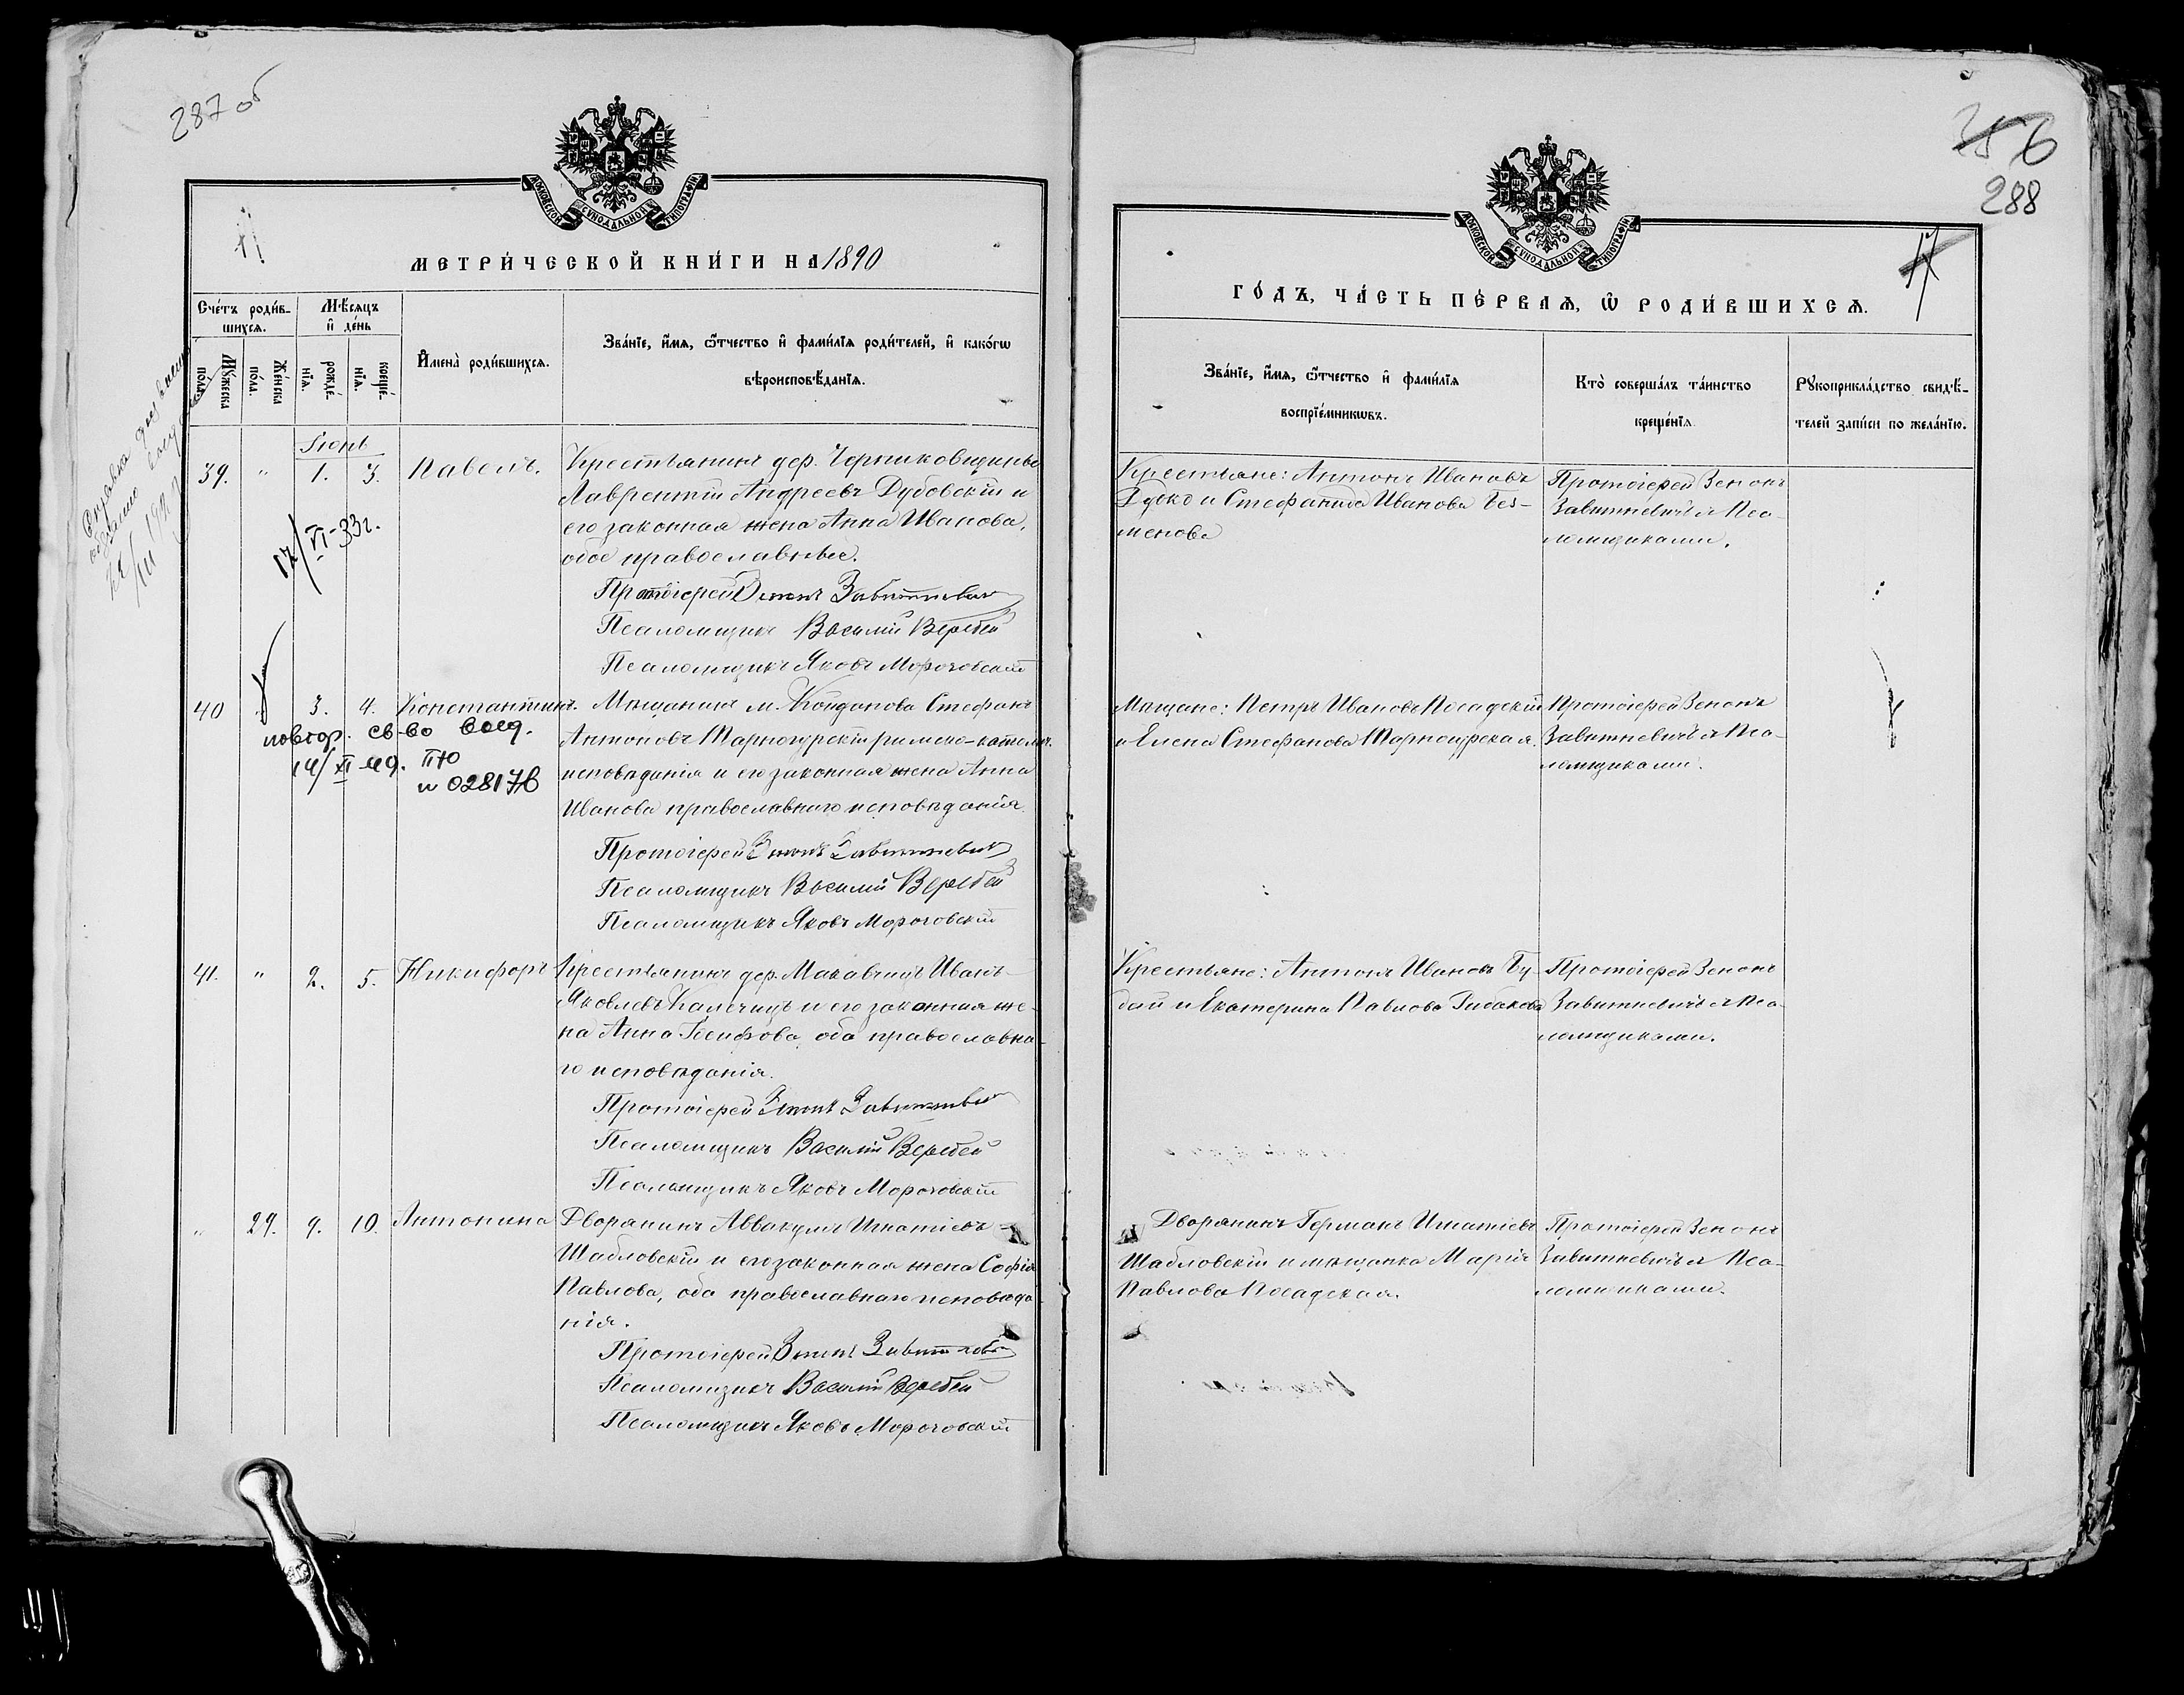 287 об
МОСКОВСКОЙ СѴНОДАЛЬНОЙ ТИПОГРАФІИ
МЕТРИ́ЧЕСКОЙ КНИ́ГИ НА 1890
Сче́тъ роди́в-
шихся.
Мѣ́сяцъ
и҆ де́нь
Му́жеска
по́ла.
Же́нска
по́ла.
рожде́-
нїя.
креще́-
нїя.
И҆мена̀ роди́вшихся.
Зва́нїе, и҆́мя, ѻ҆́тчество и҆ фами́лїя роди́телей, и҆ како́гѡ
вѣроисповѣ́данїя.
Іюнь
39. " 1. 3. Павелъ.
Крестьянинъ дер. Черниковщины
Лаврентій Андреевъ Дубовскій и
его законная жена Анна Иванова,
обое православные.
12/VI-33г.
Протоіерей Зенонъ Завитневич
Псаломщикъ Василій Вересей
Псаломщикъ Яковъ Мороговскій
40 3. 4. Константинъ.
Мѣщанинъ м. Койданова Стефанъ
Антоновъ Тарногурскій римско-католич.
исповѣданія и его законная жена Анна
Иванова православнаго исповѣданія.
повтор. св-во выд.
14/XI-49. ПЮ
N 028176
Протоіерей Зенонъ Завитневич
Псаломщикъ Василій Вересей
Псаломщикъ Яковъ Мороговскій
41. " 2. 5. Никифоръ
Крестьянинъ дер. Макавчицъ Иванъ
Яковлевъ Калечицъ и его законная же-
на Анна Іосифова, оба православна-
го исповѣданія.
Протоіерей Зенонъ Завитневич
Псаломщикъ Василій Вересей
Псаломщикъ Яковъ Мороговскій
" 29. 9. 10. Антонина
Дворянинъ Аввакумъ Игнатіевъ
Шабловскій и его законная жена Софія
Павлова, оба православнаго исповѣда-
нія.
Протоіерей Зенонъ Завитневич
Псаломщикъ Василій Вересей
Псаломщикъ Яковъ Мороговскій
288
МОСКОВСКОЙ СѴНОДАЛЬНОЙ ТИПОГРАФІИ
ГО́ДЪ, ЧА́СТЬ ПЕ́РВАЯ, Ѽ РОДИ́ВШИХСЯ.
Зва́нїе, и҆́мя, ѻ҆́тчество и҆ фами́лїя
воспрїе́мникѡвъ.
Кто̀ соверша́лъ та́инство
креще́нїя.
Рꙋкоприкла́дство свидѣ́-
телей за́писи по жела́нїю.
Крестьяне: Антонъ Ивановъ
Дубко и Стефанида Иванова Без-
менова
Протоіерей Зенонъ
Завитневичъ съ Пса-
ломщиками.
Мѣщане: Петръ Ивановъ Посадскій
и Елена Стефанова Тарногурская.
Протоіерей Зенонъ
Завитневичъ съ Пса-
ломщиками.
Крестьяне: Антонъ Ивановъ Бу-
бай и Екатерина Павлова Рибакова
Протоіерей Зенонъ
Завитневичъ съ Пса-
ломщиками.
Дворянинъ Германъ Игнатіевъ
Шабловскій и мѣщанка Марія
Павлова Посадская.
Протоіерей Зенонъ
Завитневичъ съ Пса-
ломщиками.